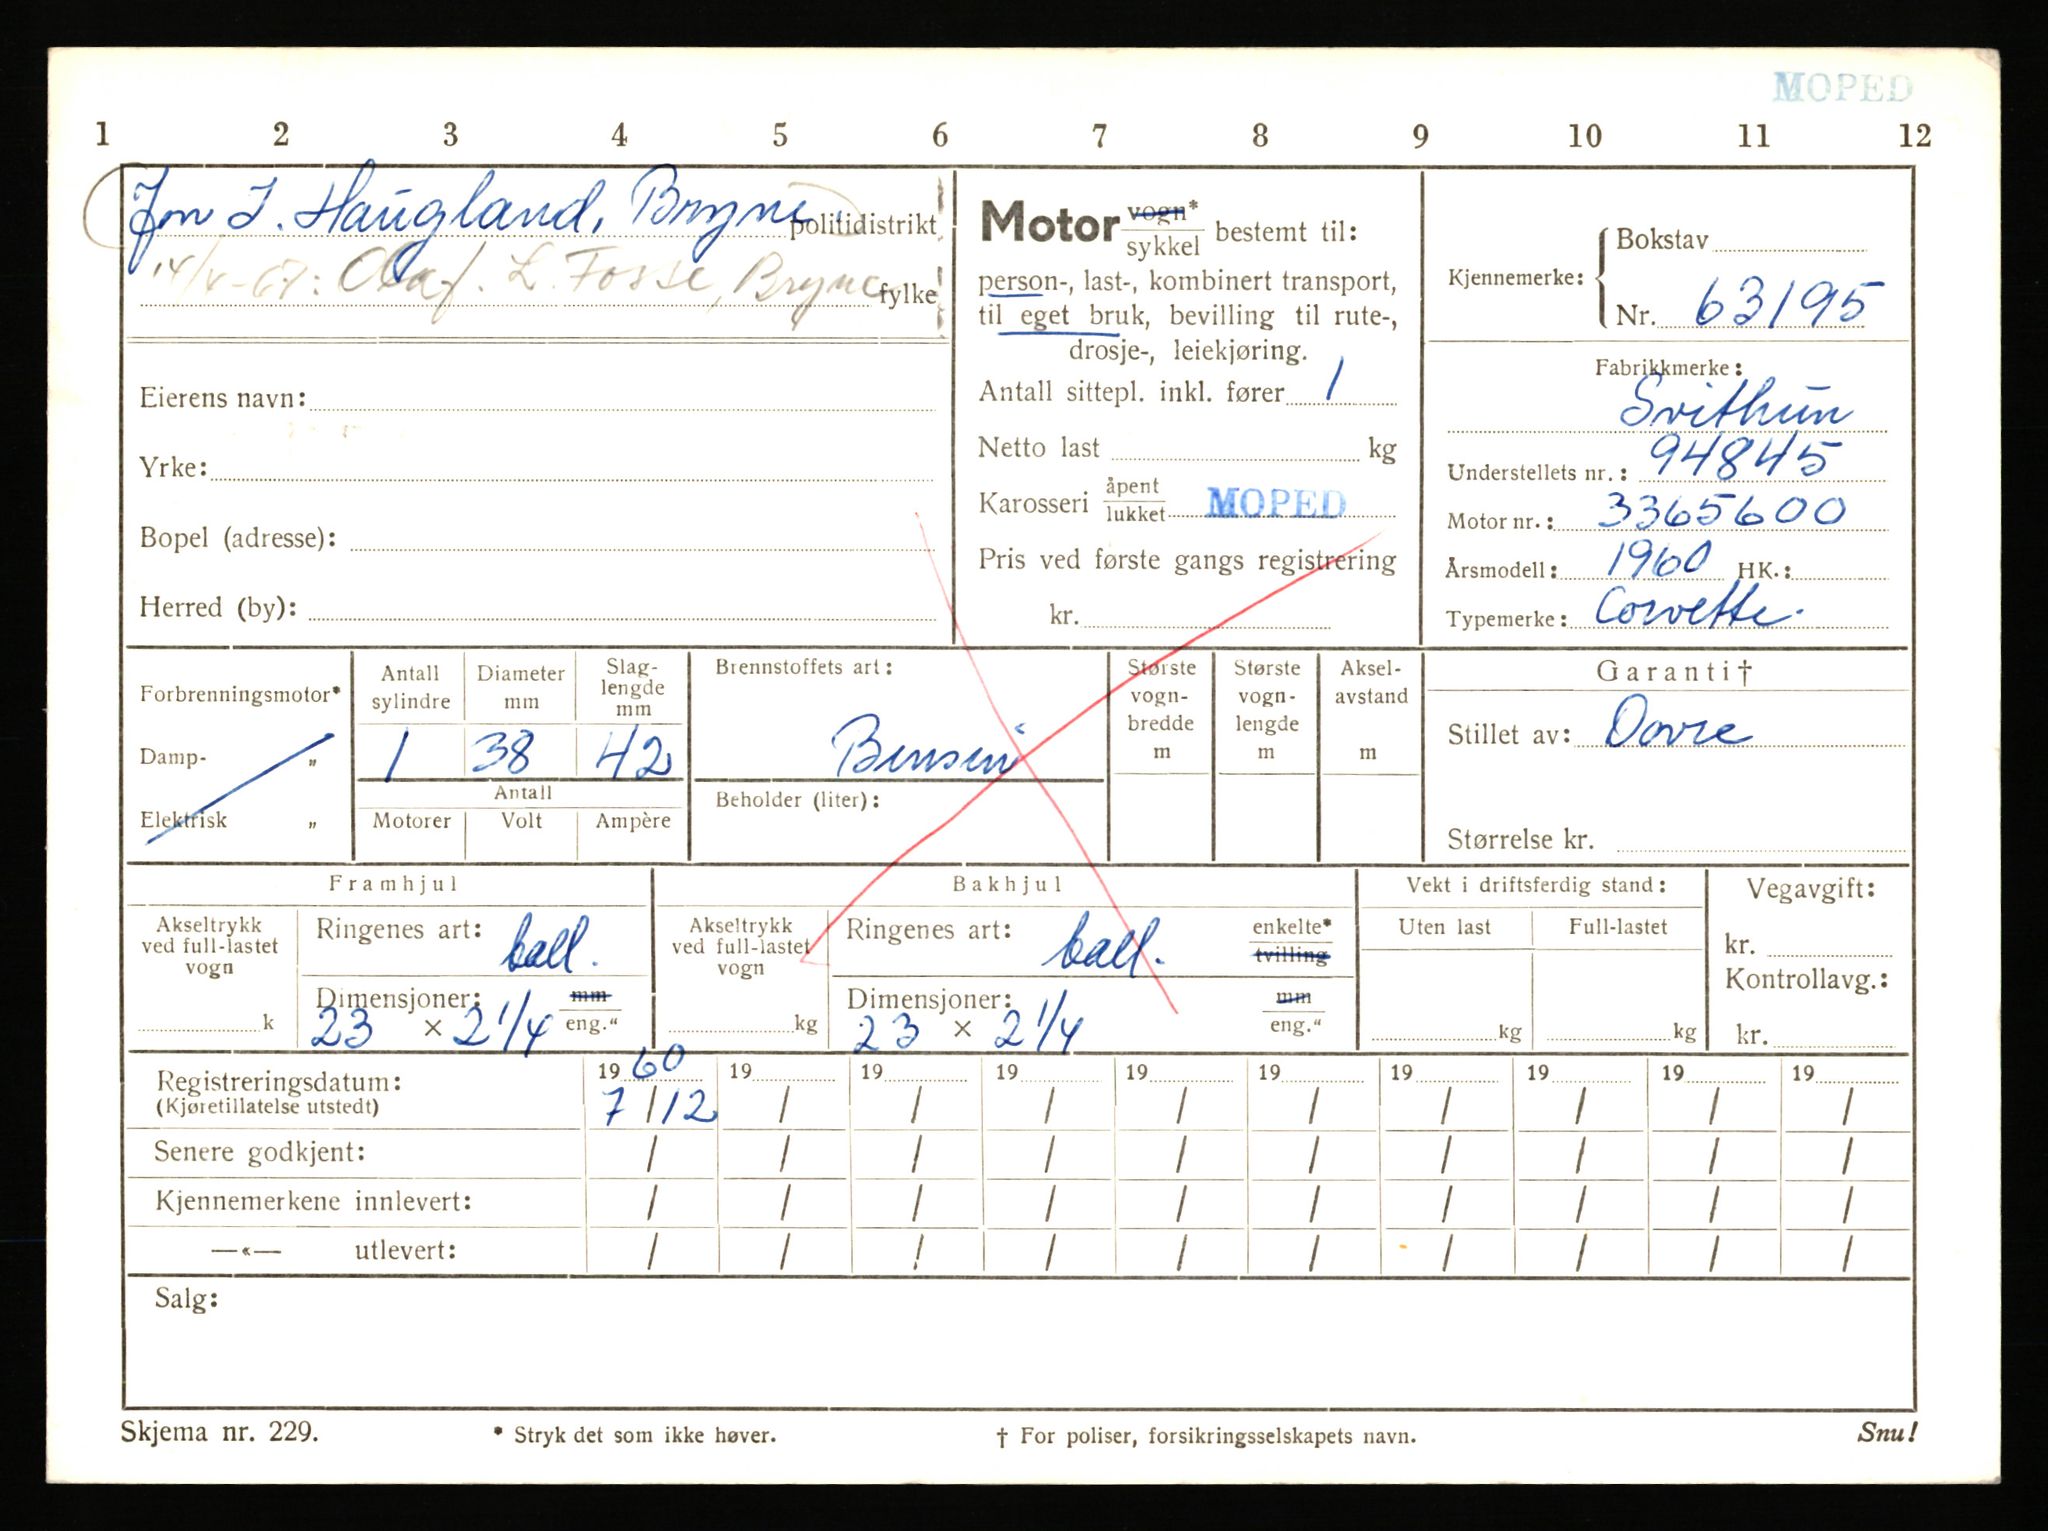 MOPED
1 2 3 4 5 6 7 8 9 10 11 12
Jon J. Haugland, Bryne politidistrikt
14/4-67: Olaf. L. Fosse, Bryne fylke
Eierens navn:
Yrke:
Bopel (adresse):
Herred (by):
Motor vogn* sykkel bestemt til:
person-, last-, kombinert transport,
til eget bruk, bevilling til rute-,
drosje-, leiekjøring.
Antall sittepl. inkl. fører 1
Netto last kg
Karosseri åpent lukket MOPED
Pris ved første gangs registrering
kr.
Kjennemerke: Bokstav
Nr. 63195
Fabrikkmerke:
Svithun
Understellets nr.: 94845
Motor nr.: 3365600
Årsmodell: 1960 HK.:
Typemerke: Corvette.
Forbrenningsmotor*
Damp- „
Elektrisk „
Antall sylindre Diameter mm Slag-lengde mm
1 38 42
Antall
Motorer Volt Ampère
Brennstoffets art:
Bensin
Beholder (liter):
Største vogn-bredde m
Største vogn-lengde m
Aksel-avstand m
Garanti†
Stillet av: Dovre
Størrelse kr.
Framhjul
Akseltrykk ved full-lastet vogn
k
Ringenes art: ball.
Dimensjoner: mm
23 × 2 1/4 eng."
Bakhjul
Akseltrykk ved full-lastet vogn
kg
Ringenes art: ball. enkelte* tvilling
Dimensjoner: mm
23 × 2 1/4 eng."
Vekt i driftsferdig stand:
Uten last Full-lastet
kg kg
Vegavgift:
kr.
Kontrollavg.:
kr.
Registreringsdatum: 1960 19 19 19 19 19 19 19 19 19
(Kjøretillatelse utstedt) 7/12 / / / / / / / / /
Senere godkjent: / / / / / / / / / /
Kjennemerkene innlevert: / / / / / / / / / /
—«— utlevert: / / / / / / / / / /
Salg:
Skjema nr. 229. * Stryk det som ikke høver. † For poliser, forsikringsselskapets navn. Snu!